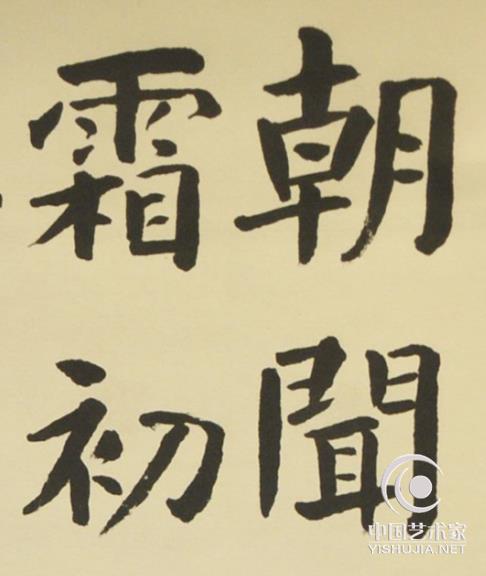 朝聞
霜初
中国艺术家
YISHUJIA.NET